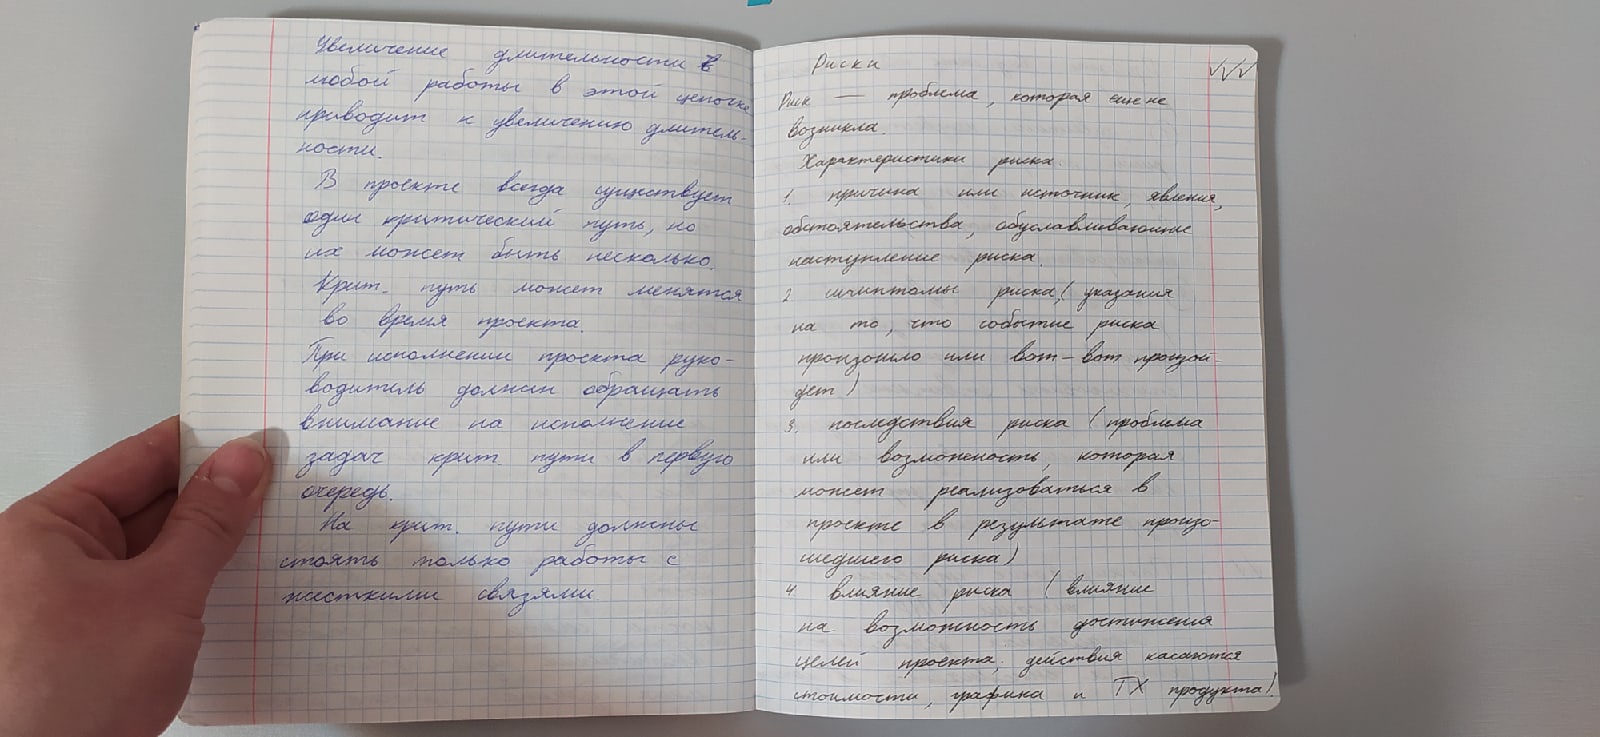 Увеличение длительности в
любой работы в этой цепочке
приводит к увеличению длитель-
ности.
В проекте всегда существует
один критический путь, но
их может быть несколько.
Крит. путь может менятся
во время проекта.
При исполнении проекта руко-
водитель должен обращать
внимание на исполнение
задач крит. пути в первую
очередь.
На крит. пути должны
стоять только работы с
жесткими связями.
Риски
Риск — проблема, которая еще не
возникла.
Характеристики риска
1. причина или источник, явления,
обстоятельства, обуславливающие
наступление риска.
2 симптомы риска (указания
на то, что событие риска
произошло или вот-вот произой-
дет)
3. последствия риска (проблема
или возможность, которая
может реализоваться в
проекте в результате произо-
шедшего риска)
4. влияние риска (влияние
на возможность достижения
целей проекта, действия касаются
стоимости, графика и ТХ продукта)